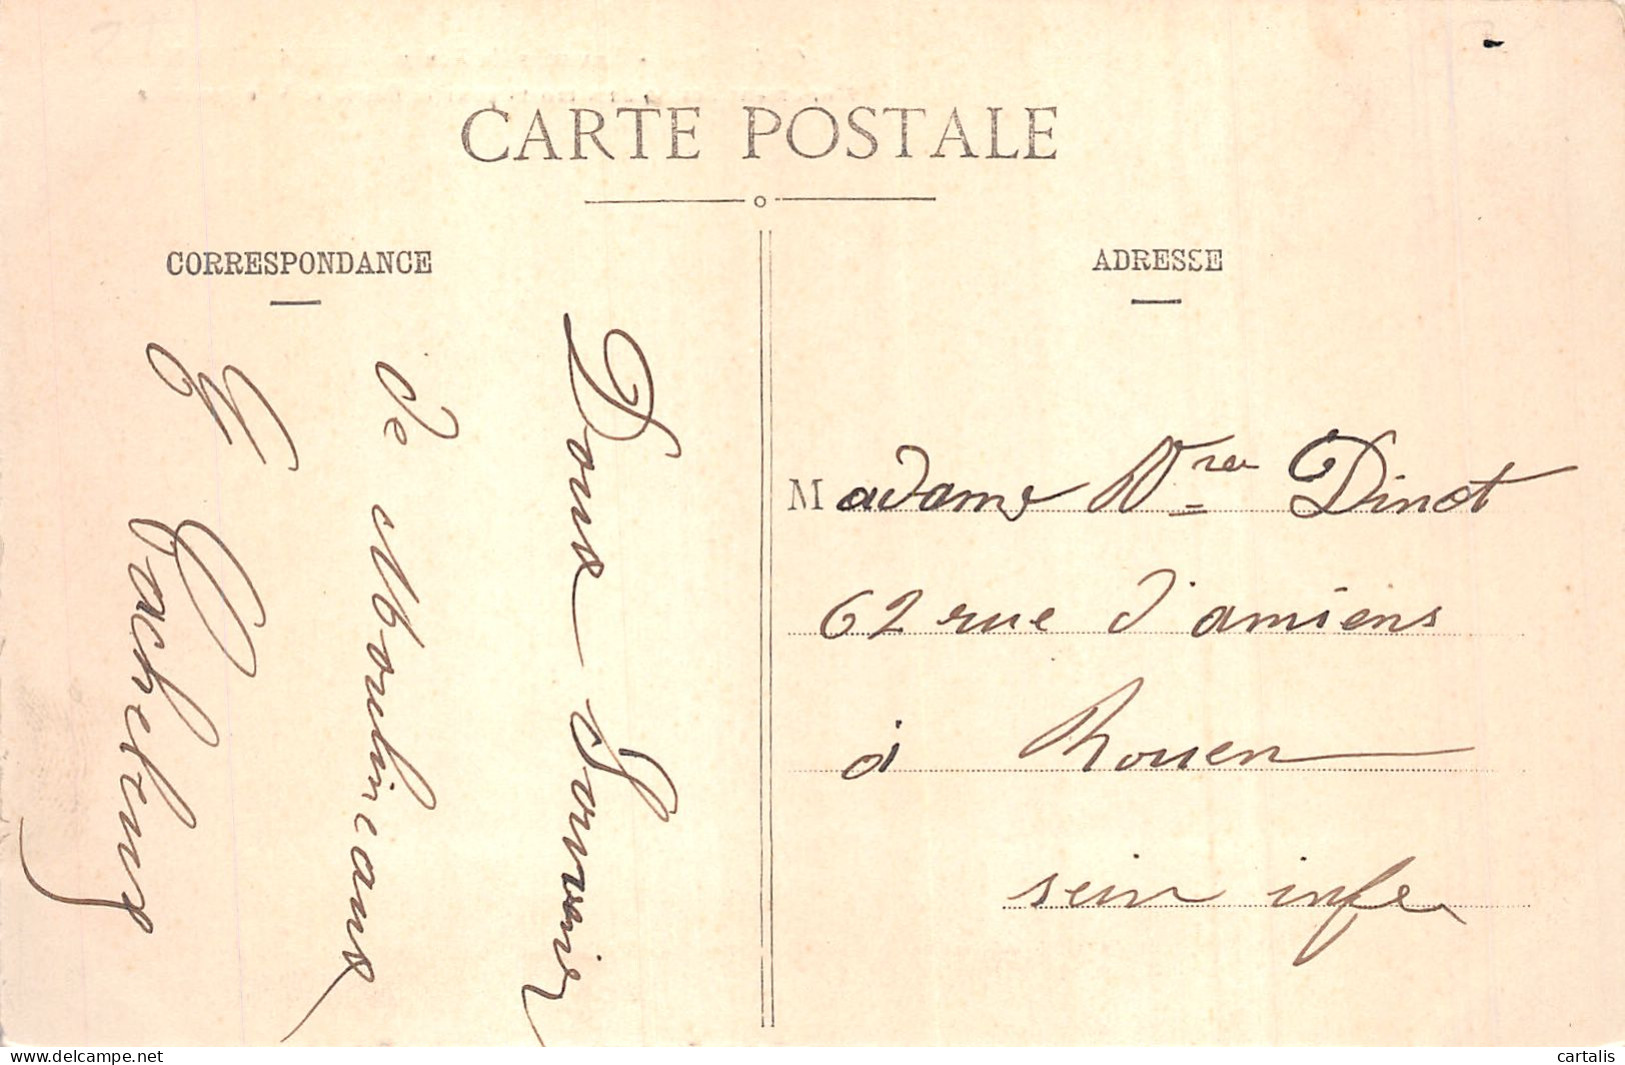 CARTE POSTALE
CORRESPONDANCE
Doux Souvenir
de Moulineaux
ADRESSE
Madame Vve Dinot
62 rue d'amiens
à Rouen
sein infer
www.delcampe.net
cartalis